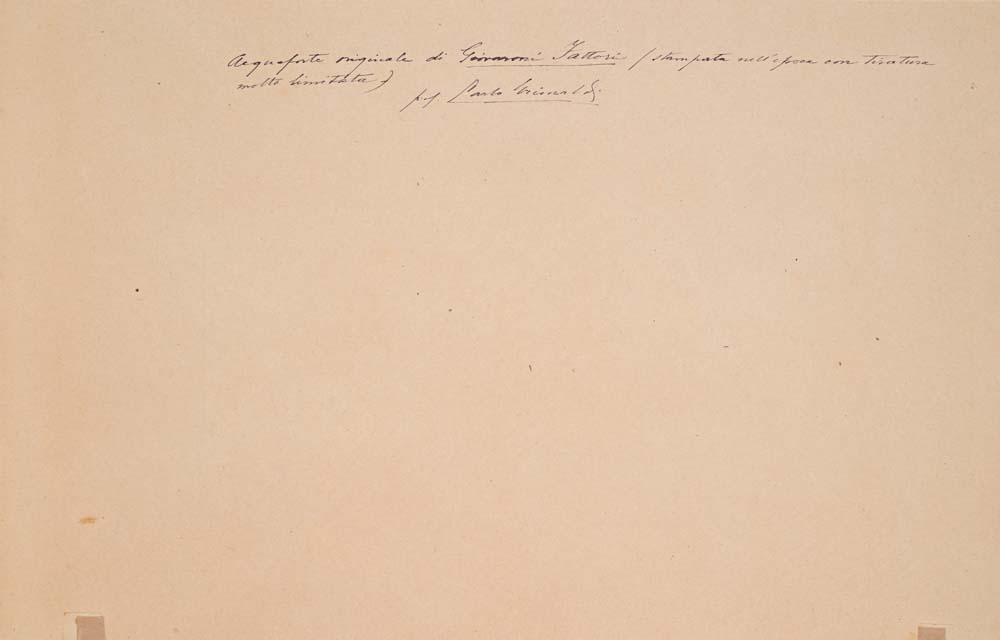 Acquaforte originale di Giovanni Fattori (stampata nell'epoca con tiratura
molto limitata)
prof. Carlo